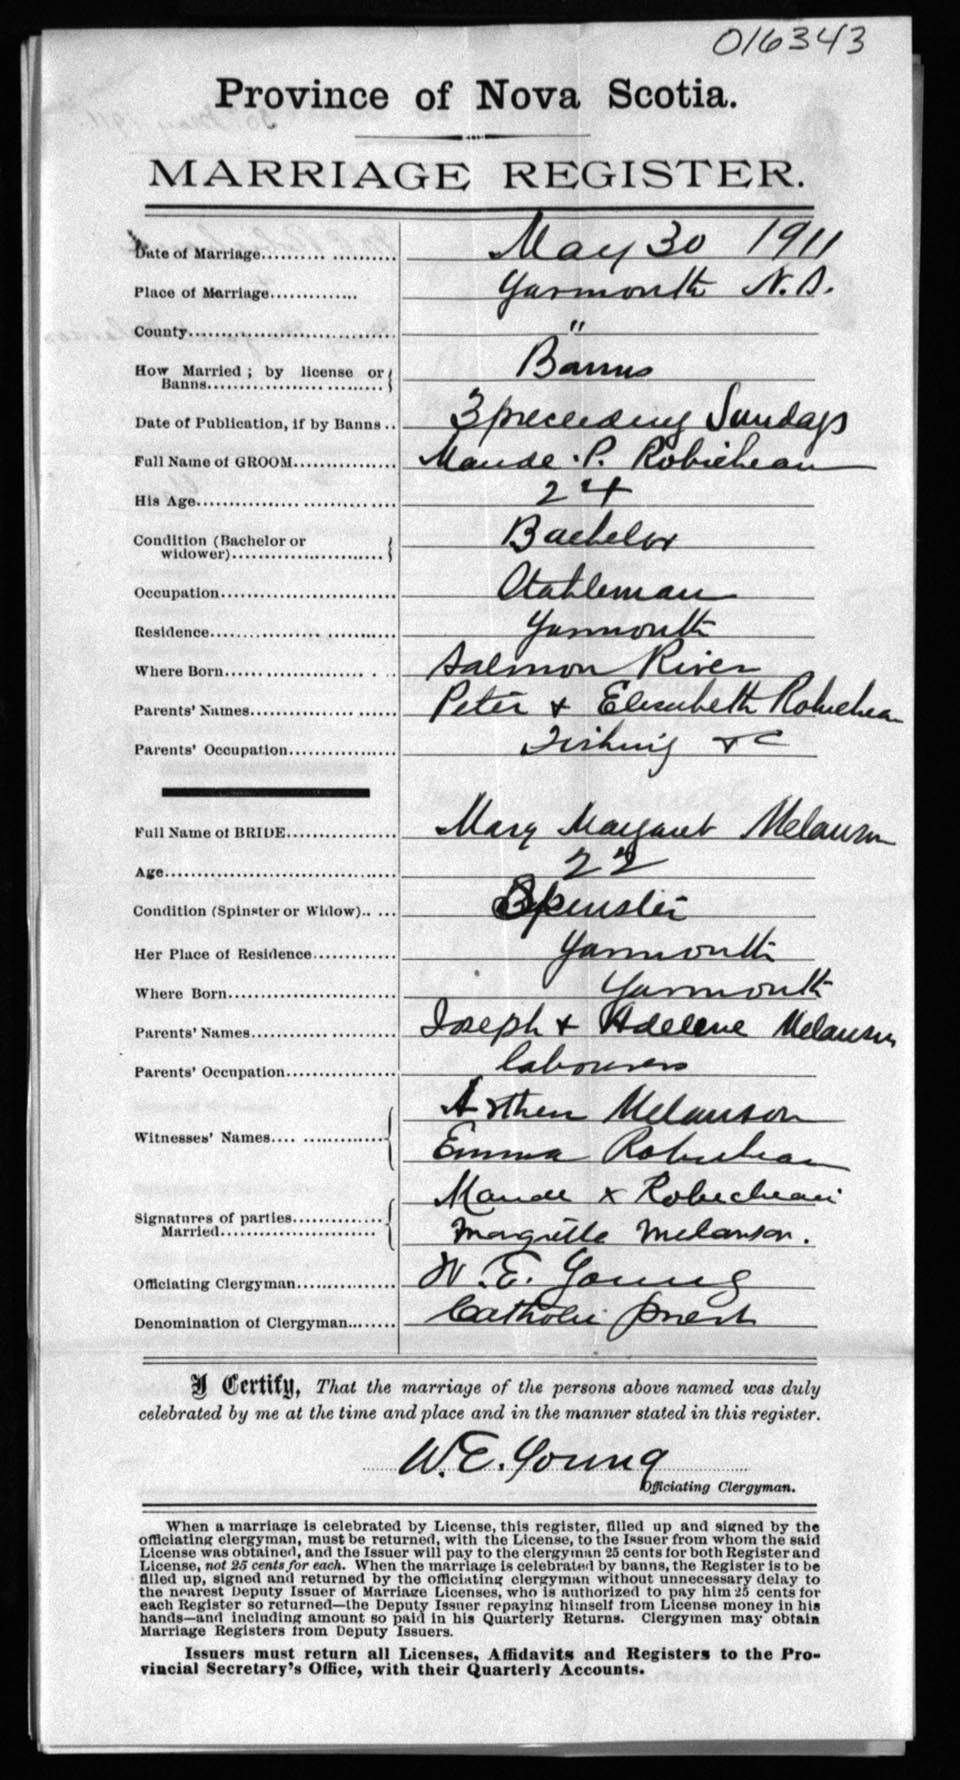 016343
Province of Nova Scotia.
MARRIAGE REGISTER.
Date of Marriage May 30 1911
Place of Marriage Yarmouth N.S.
County "
How Married; by license or
Banns Banns
Date of Publication, if by Banns 3 preceeding Sundays
Full Name of GROOM Mande P. Robicheau
His Age 24
Condition (Bachelor or
widower) Bachelor
Occupation Stableman
Residence Yarmouth
Where Born Salmon River
Parents' Names Peter & Elisabeth Robichea
Parents' Occupation Fishing &c
Full Name of BRIDE Mary Margaret Melanson
Age 22
Condition (Spinster or Widow) Spinster
Her Place of Residence Yarmouth
Where Born Yarmouth
Parents' Names Joseph & Adelene Melanson
Parents' Occupation labourers
Witnesses' Names Arthur Melanson
Emma Robicheau
Signatures of parties Mande x Robicheau
Married Margritte Melanson.
Officiating Clergyman W. E. Young
Denomination of Clergyman Catholic priest
I Certify, That the marriage of the persons above named was duly
celebrated by me at the time and place and in the manner stated in this register.
W. E. Young
Officiating Clergyman.
When a marriage is celebrated by License, this register, filled up and signed by the
officiating clergyman, must be returned, with the License, to the Issuer from whom the said
License was obtained, and the Issuer will pay to the clergyman 25 cents for both Register and
License, not 25 cents for each. When the marriage is celebrated by banns, the Register is to be
filled up, signed and returned by the officiating clergyman without unnecessary delay to
the nearest Deputy Issuer of Marriage Licenses, who is authorized to pay him 25 cents for
each Register so returned—the Deputy Issuer repaying himself from License money in his
hands—and including amount so paid in his Quarterly Returns. Clergymen may obtain
Marriage Registers from Deputy Issuers.
Issuers must return all Licenses, Affidavits and Registers to the Pro-
vincial Secretary's Office, with their Quarterly Accounts.